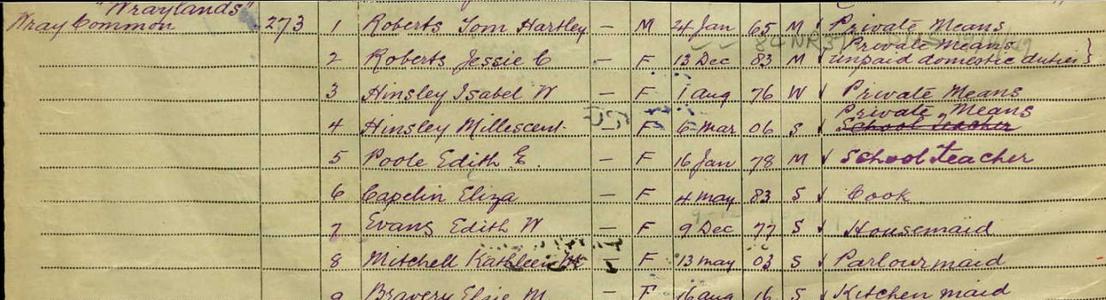 "Wraylands"
Wray Common 273 1 Roberts Tom Hartley — M 24 Jan 65 M ✓ Private Means
Private Means
2 Roberts Jessie C — F 13 Dec 83 M ✓ unpaid domestic duties }
3 Hinsley Isabel W — F 1 Aug 76 W ✓ Private Means
Private Means
4 Hinsley Millescent — F 6 Mar 06 S ✓ School teacher
5 Poole Edith E. — F 16 Jan 78 M ✓ School teacher
6 Capelin Eliza — F 4 May 83 S ✓ Cook
7 Evans Edith W — F 9 Dec 77 S ✓ Housemaid
8 Mitchell Kathleen — F 13 May 03 S ✓ Parlourmaid
9 Bravery Elsie M — F 16 Aug 16 S ✓ Kitchen maid